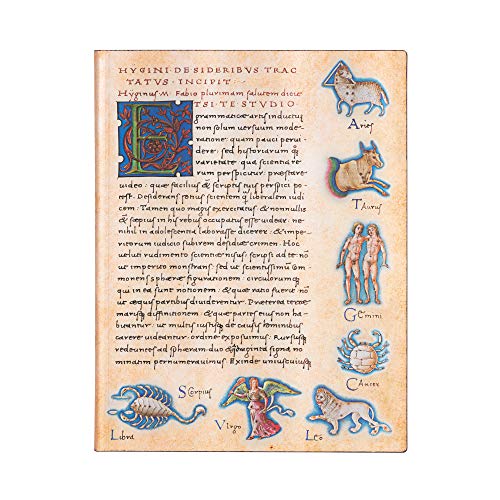 HYGINI · DE SIDERIBVS TRAC
TATVS · INCIPIT ·
Hyginus · M · Fabio plurimam salutem dicit
E TSI TE STUDIO
grammaticæ artis inductū
non solum uersuum mode-
ratione: quam pauci perui-
dere: sed historiarum q̃
uarietate qua scientia re
rum perspicitur: præstare
uideo: quæ facilius & scriptis tuis perspici po
test. Desiderans potius scientem q̃ liberalem iudi
cem: Tamen quo magis exercitatus & nonnullis
& sæpius in his rebus occupatus esse uidear: ne
nihil in adolescentia laborasse dicerer: & impe-
ritorum iudicio subirem desidiæ crimen. Hoc
ueluti rudimento scientiæ nisus: scripsi ad te: nō
ut imperito monstrans: sed ut scientissimū com-
monens sphæræ figurationem: circulorumq̃
qui in ea sunt notionem: & quæ ratio fuerit: nō
ut æquis partibus diuiderentur. Præterea terræ
marisq̃ diffinitionem: & quæ partes eius non ha-
buantur: ut multis iustisq̃ de causis hominibus
carere uideantur: ordine exposuimus. Rursusq̃
redeuntes ad sphæram: duo & quadraginta signa no
minatim pernumerauimus. Exinde uniuscuiusq̃
Aries
Taurus
Gemini
Cancer
Scorpius
Libra
Virgo
Leo